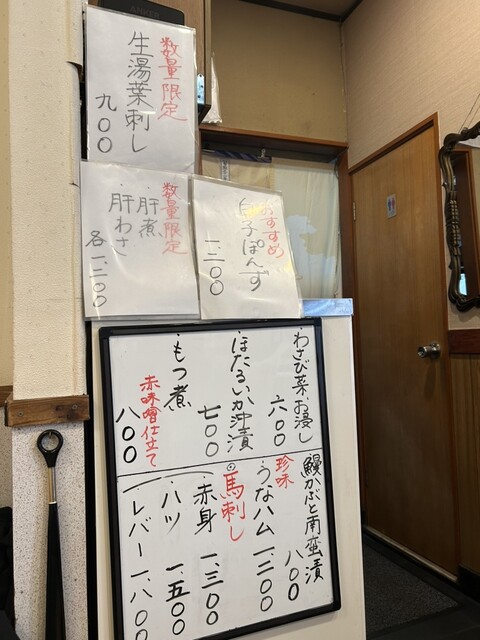 数量限定
生湯葉刺し
九〇〇
数量限定
・肝煮
・肝わさ
各一、二〇〇
おすすめ
白子ぽんず
一、二〇〇
・わさび菜お浸し
六〇〇
・ほたるいか沖漬
七〇〇
・もつ煮
赤味噌仕立て
八〇〇
鰻かぶと南蛮漬
八〇〇
珍味
・うなハム
一、二〇〇
馬刺し
・赤身
一、三〇〇
・ハツ
一、五〇〇
・レバー
一、八〇〇